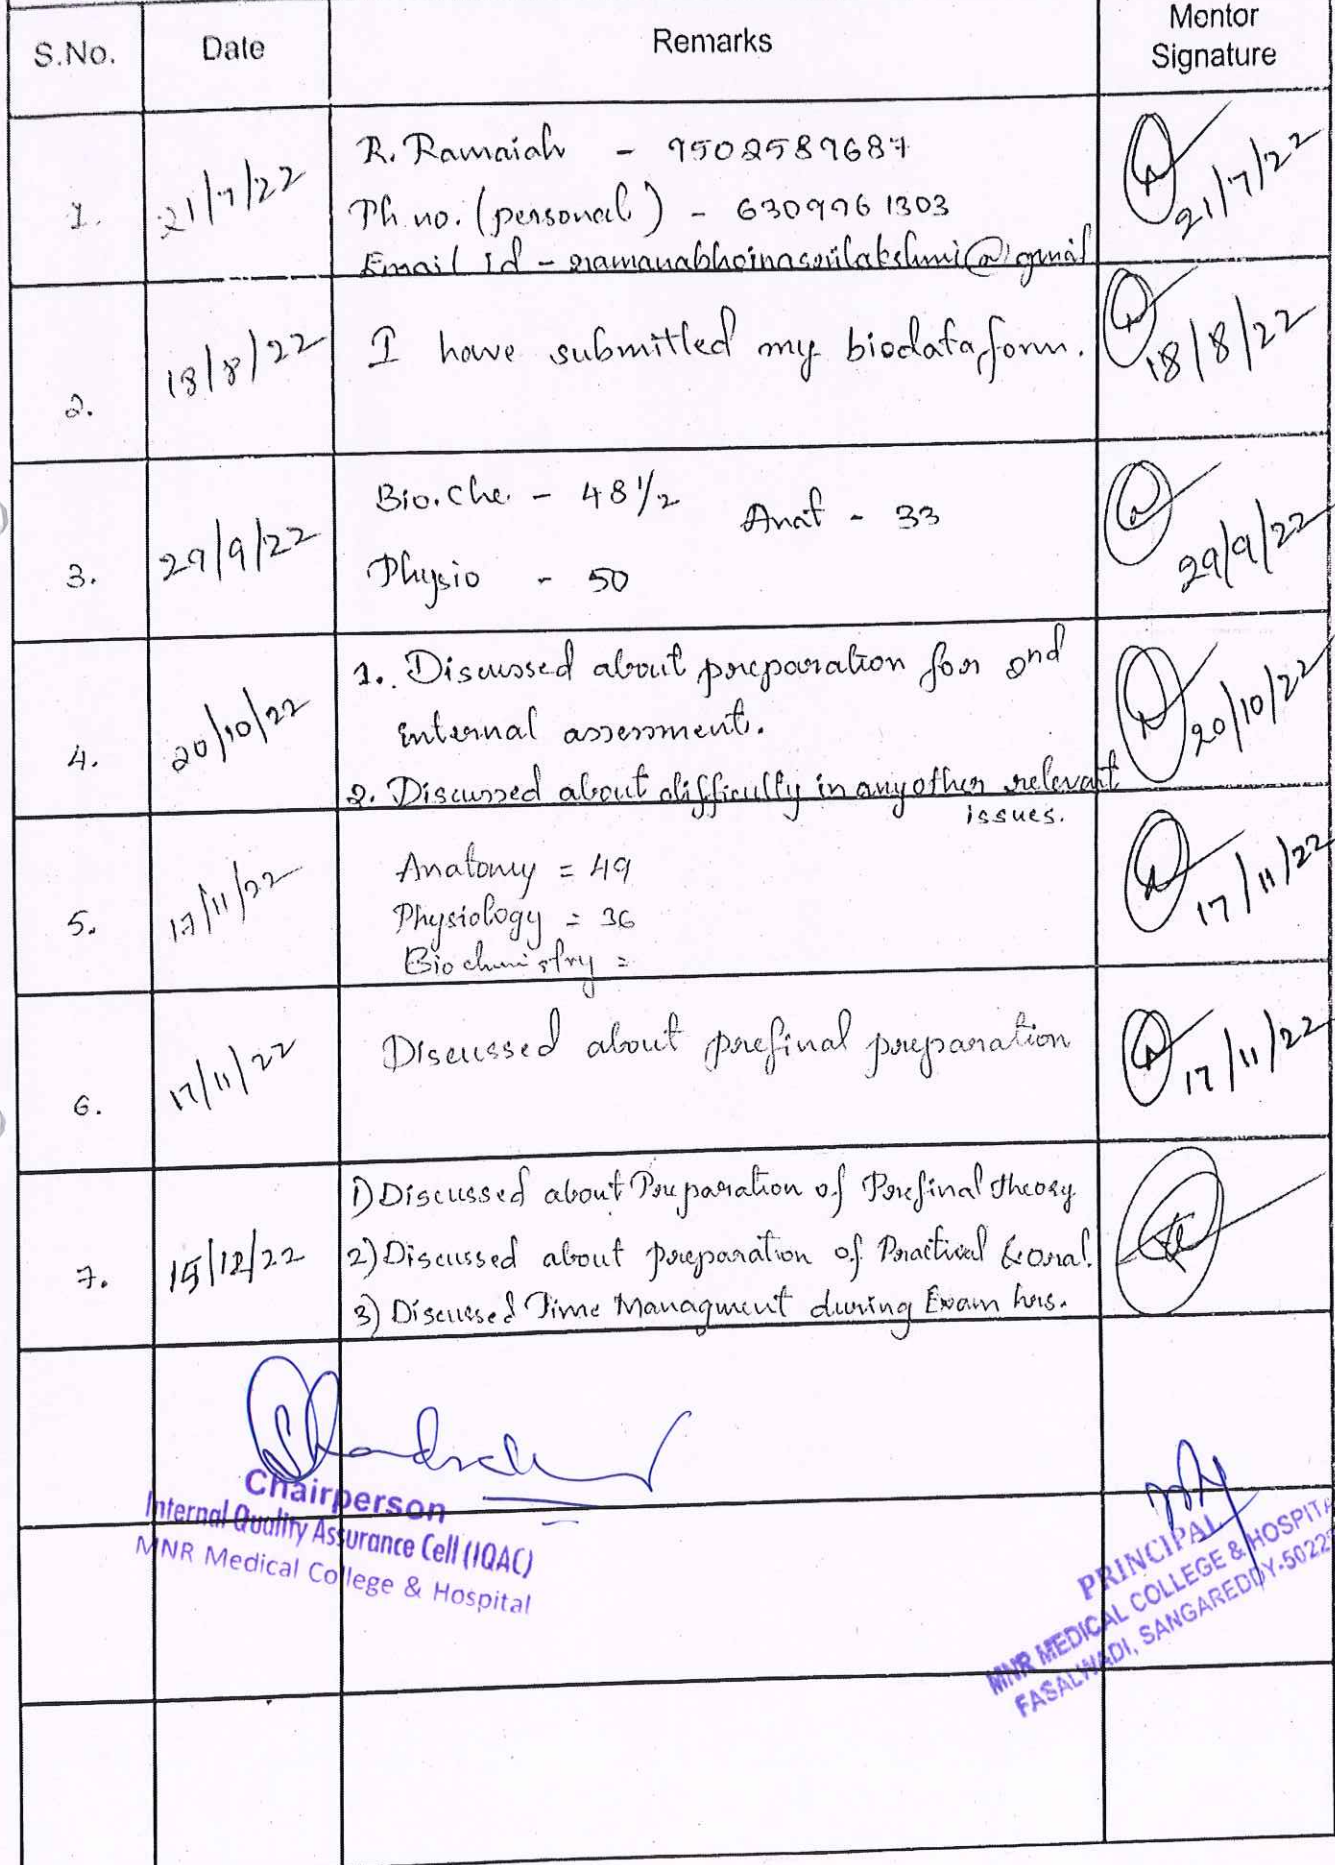 S.No. Date Remarks Mentor Signature
1. 21/7/22 R. Ramaiah - 9502589687 21/7/22
Ph no. (personal) - 6309961303
Email id -
2. 18/8/22 I have submitted my biodata form. 18/8/22
3. 29/9/22 Bio.Che. - 48 1/2 Anat - 33 29/9/22
Physio - 50
4. 20/10/22 1. Discussed about preparation for 2nd 20/10/22
internal assessment.
2. Discussed about difficulty in any other relevant
issues.
5. 17/11/22 Anatomy = 49 17/11/22
Physiology = 36
Biochemistry =
6. 17/11/22 Discussed about prefinal preparation 17/11/22
7. 15/12/22 1) Discussed about Preparation of Prefinal theory
2) Discussed about preparation of Practical & oral.
3) Discussed Time Managment during Exam hrs.
Chairperson
Internal Quality Assurance Cell (IQAC)
MNR Medical College & Hospital
PRINCIPAL
MNR MEDICAL COLLEGE & HOSPITA
FASALWADI, SANGAREDDY-5022